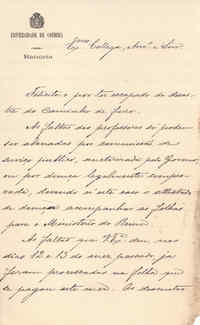 UNIVERSIDADE DE COIMBRA
Reitoria
Exmo Collega, Amo e Snr.
Felicito-o por ter escapado do desas-
tre do Caminho de ferro.
As faltas dos professores só podem
ser abonadas por commissão de
serviço publico, auctorisada pelo Governo,
ou por doença legalmente compro-
vada, devendo n'este caso o attestado
de doença acompanhar as folhas
para o Ministerio do Reino.
As faltas que V. Exa deu nos
dias 12 e 13 do mez passado, já
foram processadas na folha que
se pagou este mez. Os descontos